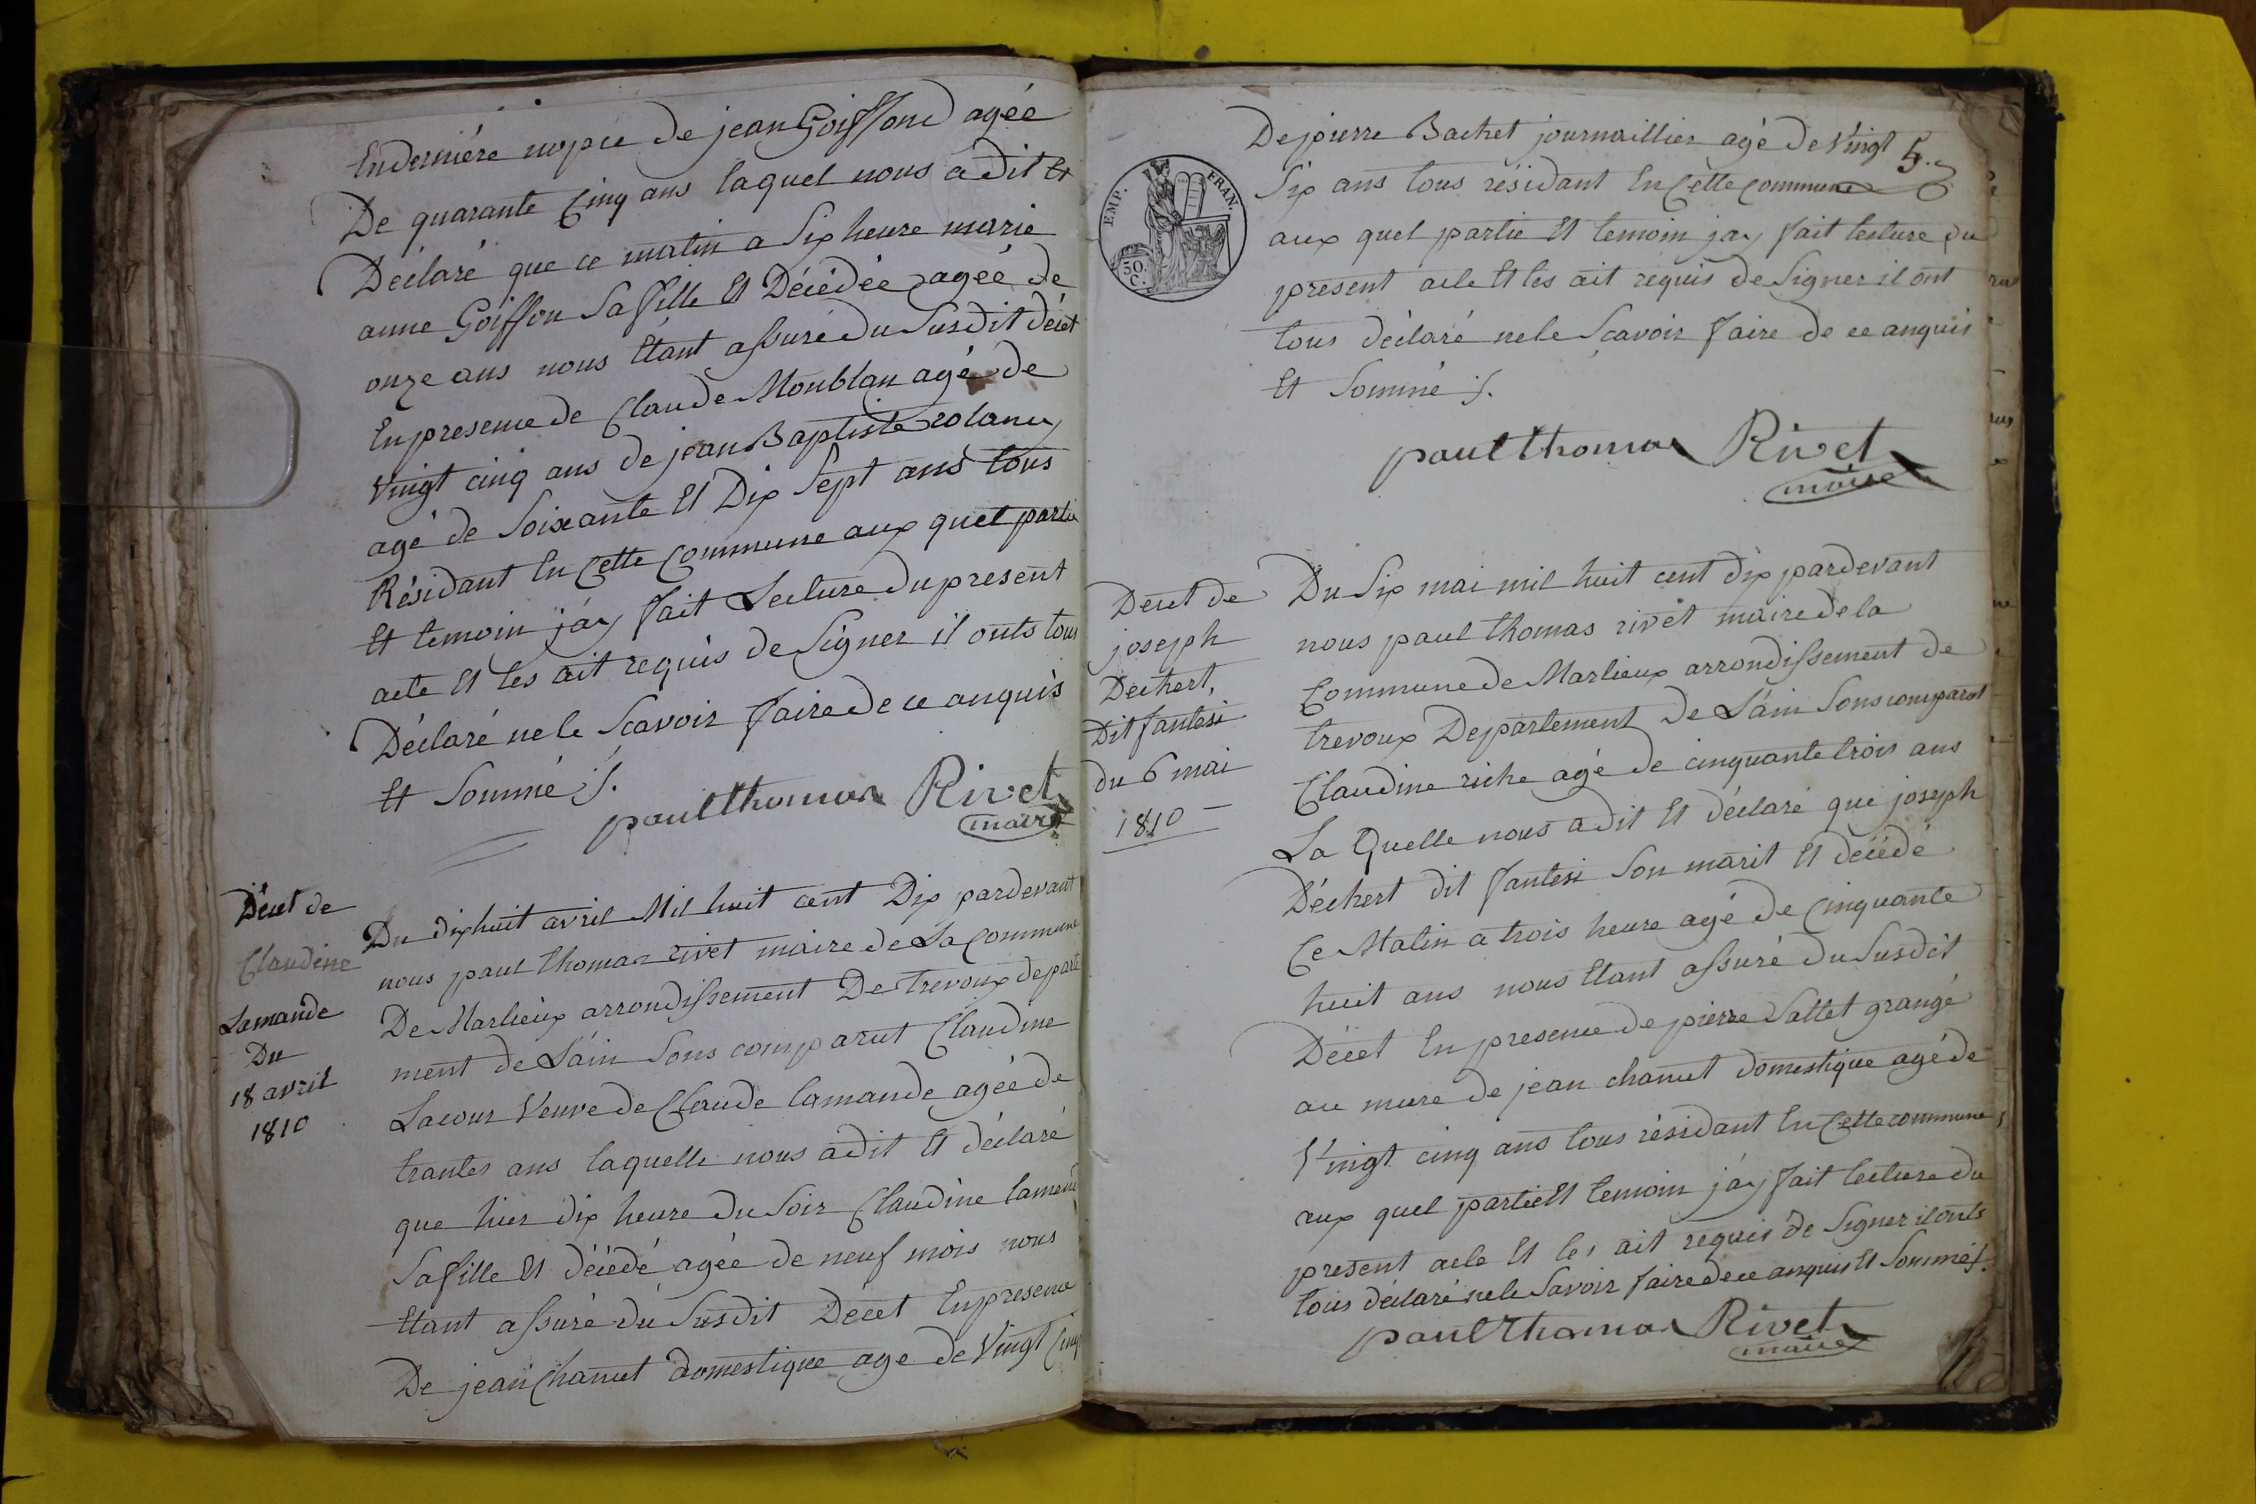 En derniére nopce de jean Goiffond agée
De quarante Cinq ans laquel nous a dit Et
Déclaré que ce matin a Six heure marie
anne Goiffon Sa fille Et Décédée agéé de
onze ans nous Etant assuré du Susdit décet
En presence de Claude Monblan agé de
Vingt cinq ans de jean Baptiste rolany
agé de Soixante Et Dix Sept ans tous
Résidant En Cette Commune aux quel partie
Et temoin j'ay fait Lecture du present
acte Et les ait requis de Signer il onts tous
Déclaré ne le Scavoir faire de ce anquis
Et Sommé ·/.
paul thomas Rivet
maire
Décet de
Claudine
Lamande
Du
18 avril
1810
Du dixhuit avril Mil huit cent Dix pardevant
nous paul thomas rivet maire de La Commune
De Marlieux arrondissement De trevoux depate
ment de L'áin Sons comparut Claudine
Lacour Veuve de Claude lamande agée de
trantes ans laquelle nous a dit Et déclaré
que hier dix heure du Soir Claudine lamend
Sa fille Et décédé agée de neuf mois nous
Etant assuré du Susdit Décet En presence
De jean Chanut domestique age de Vingt Cinq
5.
EMP. FRAN.
50.
C.
De pierre Bachet journaillier agé de Vingt
Six ans tous résidant En Cette Commune
aux quel partie Et temoin jay fait lecture du
present acte Et les ait requis de Signer il ont
tous déclaré ne le Scavoir faire de ce anquis
Et Sommé ·/.
paul thomas Rivet
maire
Decet de
joseph
Dechert,
Dit fantesi
du 6 mai
1810
Du Six mai mil huit cent dix pardevant
nous paul thomas rivet maire de la
Commune de Marlieux arrondissement de
trevoux Departement de L'áin Sons comparut
Claudine riche agé de cinquante trois ans
La Quelle nous a dit Et déclaré que joseph
Déchert dit fantesi Son marit Et décédé
Ce Matin a trois heure agé de Cinquante
huit ans nous Etant assuré du Susdit
Décet En presence de pierre Sallet grangé
au mure de jean chanut domestique agé de
Vingt cinq ans tous résidant En Cette commune
aux quel partie Et temoin j'ay fait lecture du
present acte Et les ait requis de Signer il onts
tous déclaré ne le Savoir faire de ce anquis Et Sommé ·/.
paul thomas Rivet
maire